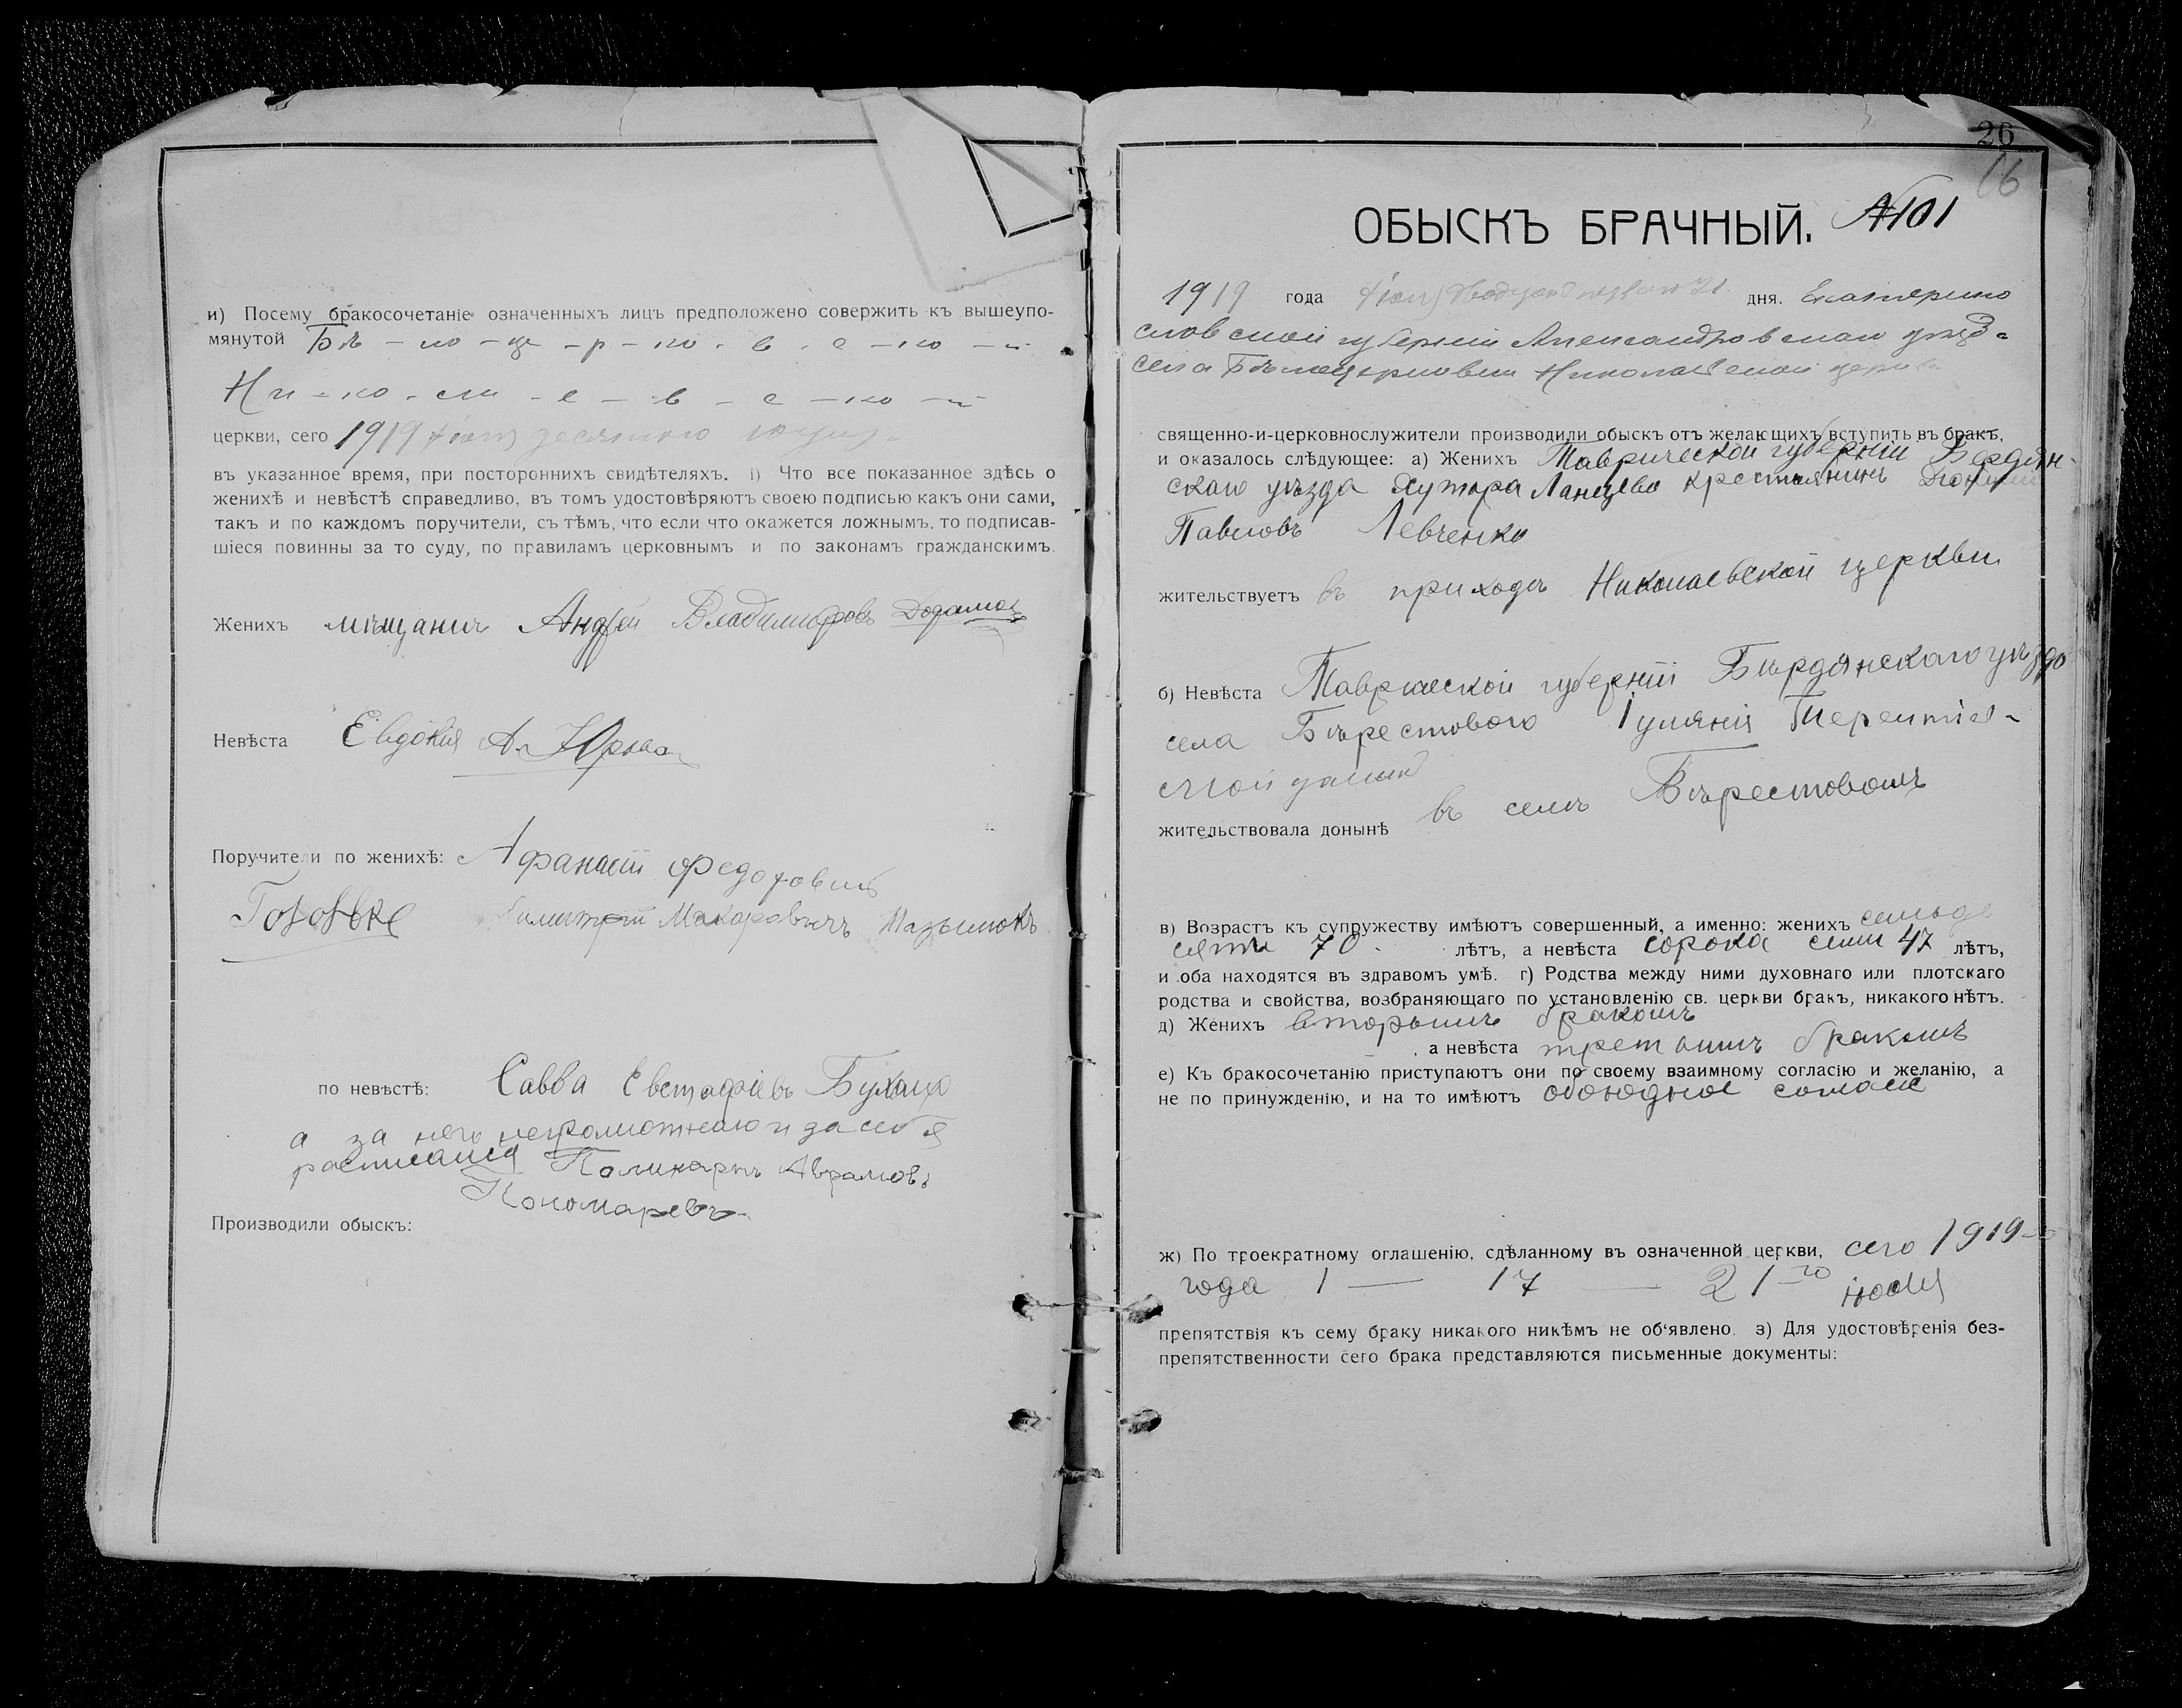 и) Посему бракосочетаніе означенныхъ лицъ предположено совержить къ вышеупо-
мянутой Бѣ - ло - це - р - ко - в - с - ко - й
Ни - ко - ла - е - в - с - ко - й
церкви, сего 1919
въ указанное время, при постороннихъ свидѣтеляхъ. і) Что все показанное здѣсь о
женихѣ и невѣстѣ справедливо, въ томъ удостовѣряютъ своею подписью какъ они сами,
такъ и по каждомъ поручители, съ тѣмъ, что если что окажется ложнымъ, то подписав-
шіеся повинны за то суду, по правиламъ церковнымъ и по законамъ гражданскимъ.
Женихъ мѣщанинъ Андрей Владиміровъ
Невѣста Евдокія
Поручители по женихѣ: Афанасій Федоровичъ
Макаровичъ
по невѣстѣ: Савва Евстафіевъ
а за него неграмотнаго и за себя
расписался Поликарпъ Аврамовъ
Пономаревъ
Производили обыскъ:
26
16
ОБЫСКЪ БРАЧНЫЙ. №101
1919 года 21 дня. Екатерино
славской губерніи Александровскаго уѣзда
села Бѣлоцерковки Николаевской церкви
священно-и-церковнослужители производили обыскъ отъ желающихъ вступить въ бракъ,
и оказалось слѣдующее: а) Женихъ Таврической губерніи Бердян-
скаго уѣзда Хутора Ланцево крестьянинъ
Павловъ Левченко
жительствуетъ въ приходѣ Николаевской церкви
б) Невѣста Таврической губерніи Бѣрдянскаго уѣзда
села Бѣрестового Іуліянія
жительствовала донынѣ въ селѣ Бѣрестовомъ
в) Возрастъ къ супружеству имѣютъ совершенный, а именно: женихъ семьде
сяти 70 лѣтъ, а невѣста сорока семи 47 лѣтъ,
и оба находятся въ здравомъ умѣ. г) Родства между ними духовнаго или плотскаго
родства и свойства, возбраняющаго по установленію св. церкви бракъ, никакого нѣтъ.
д) Женихъ вторымъ бракомъ
, а невѣста третьимъ бракомъ
е) Къ бракосочетанію приступаютъ они по своему взаимному согласію и желанію, а
не по принужденію, и на то имѣютъ обоюдное согласіе
ж) По троекратному оглашенію, сдѣланному въ означенной церкви, сего 1919-го
года 1 — 17 — 21-го іюля
препятствія къ сему браку никакого никѣмъ не об'явлено. з) Для удостовѣренія без-
препятственности сего брака представляются письменные документы: